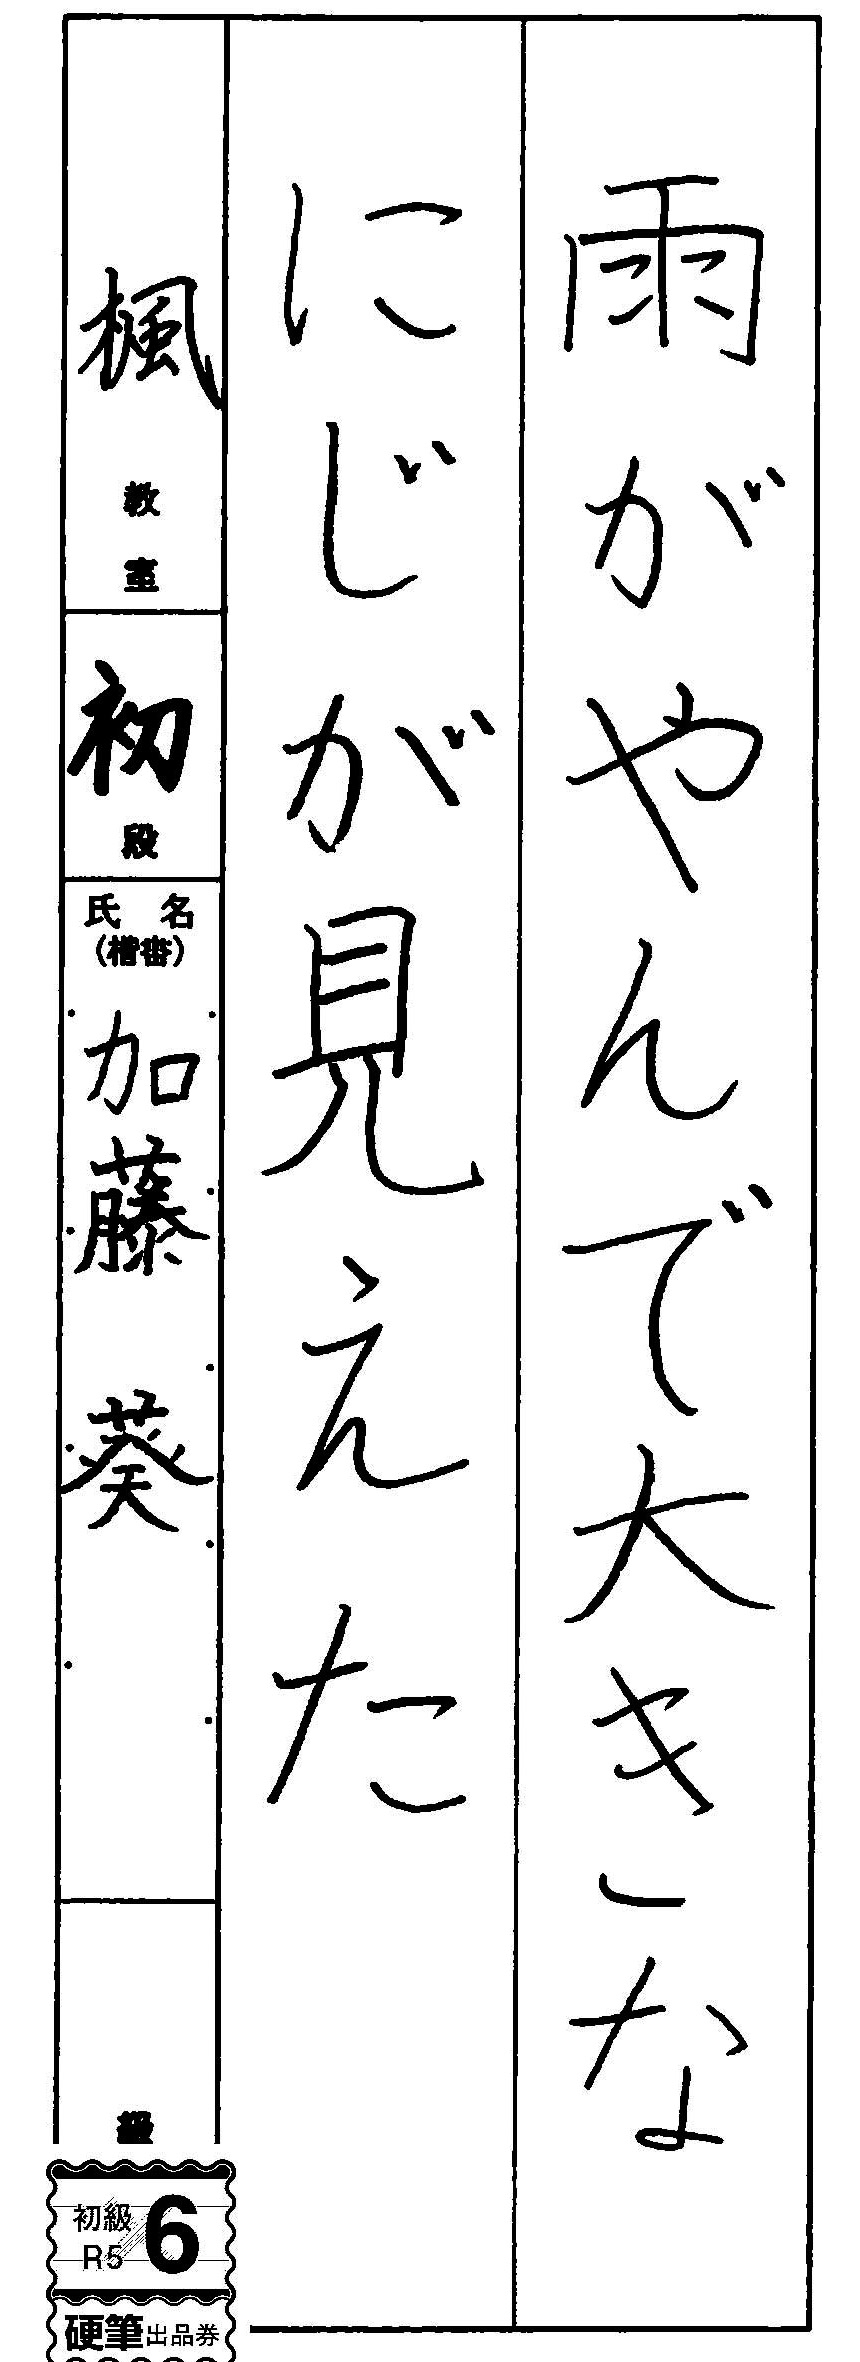 雨がやんで大きな
にじが見えた
楓教室
初段
氏名
(楷書)
加藤 葵
級
初級
R5
6
硬筆出品券